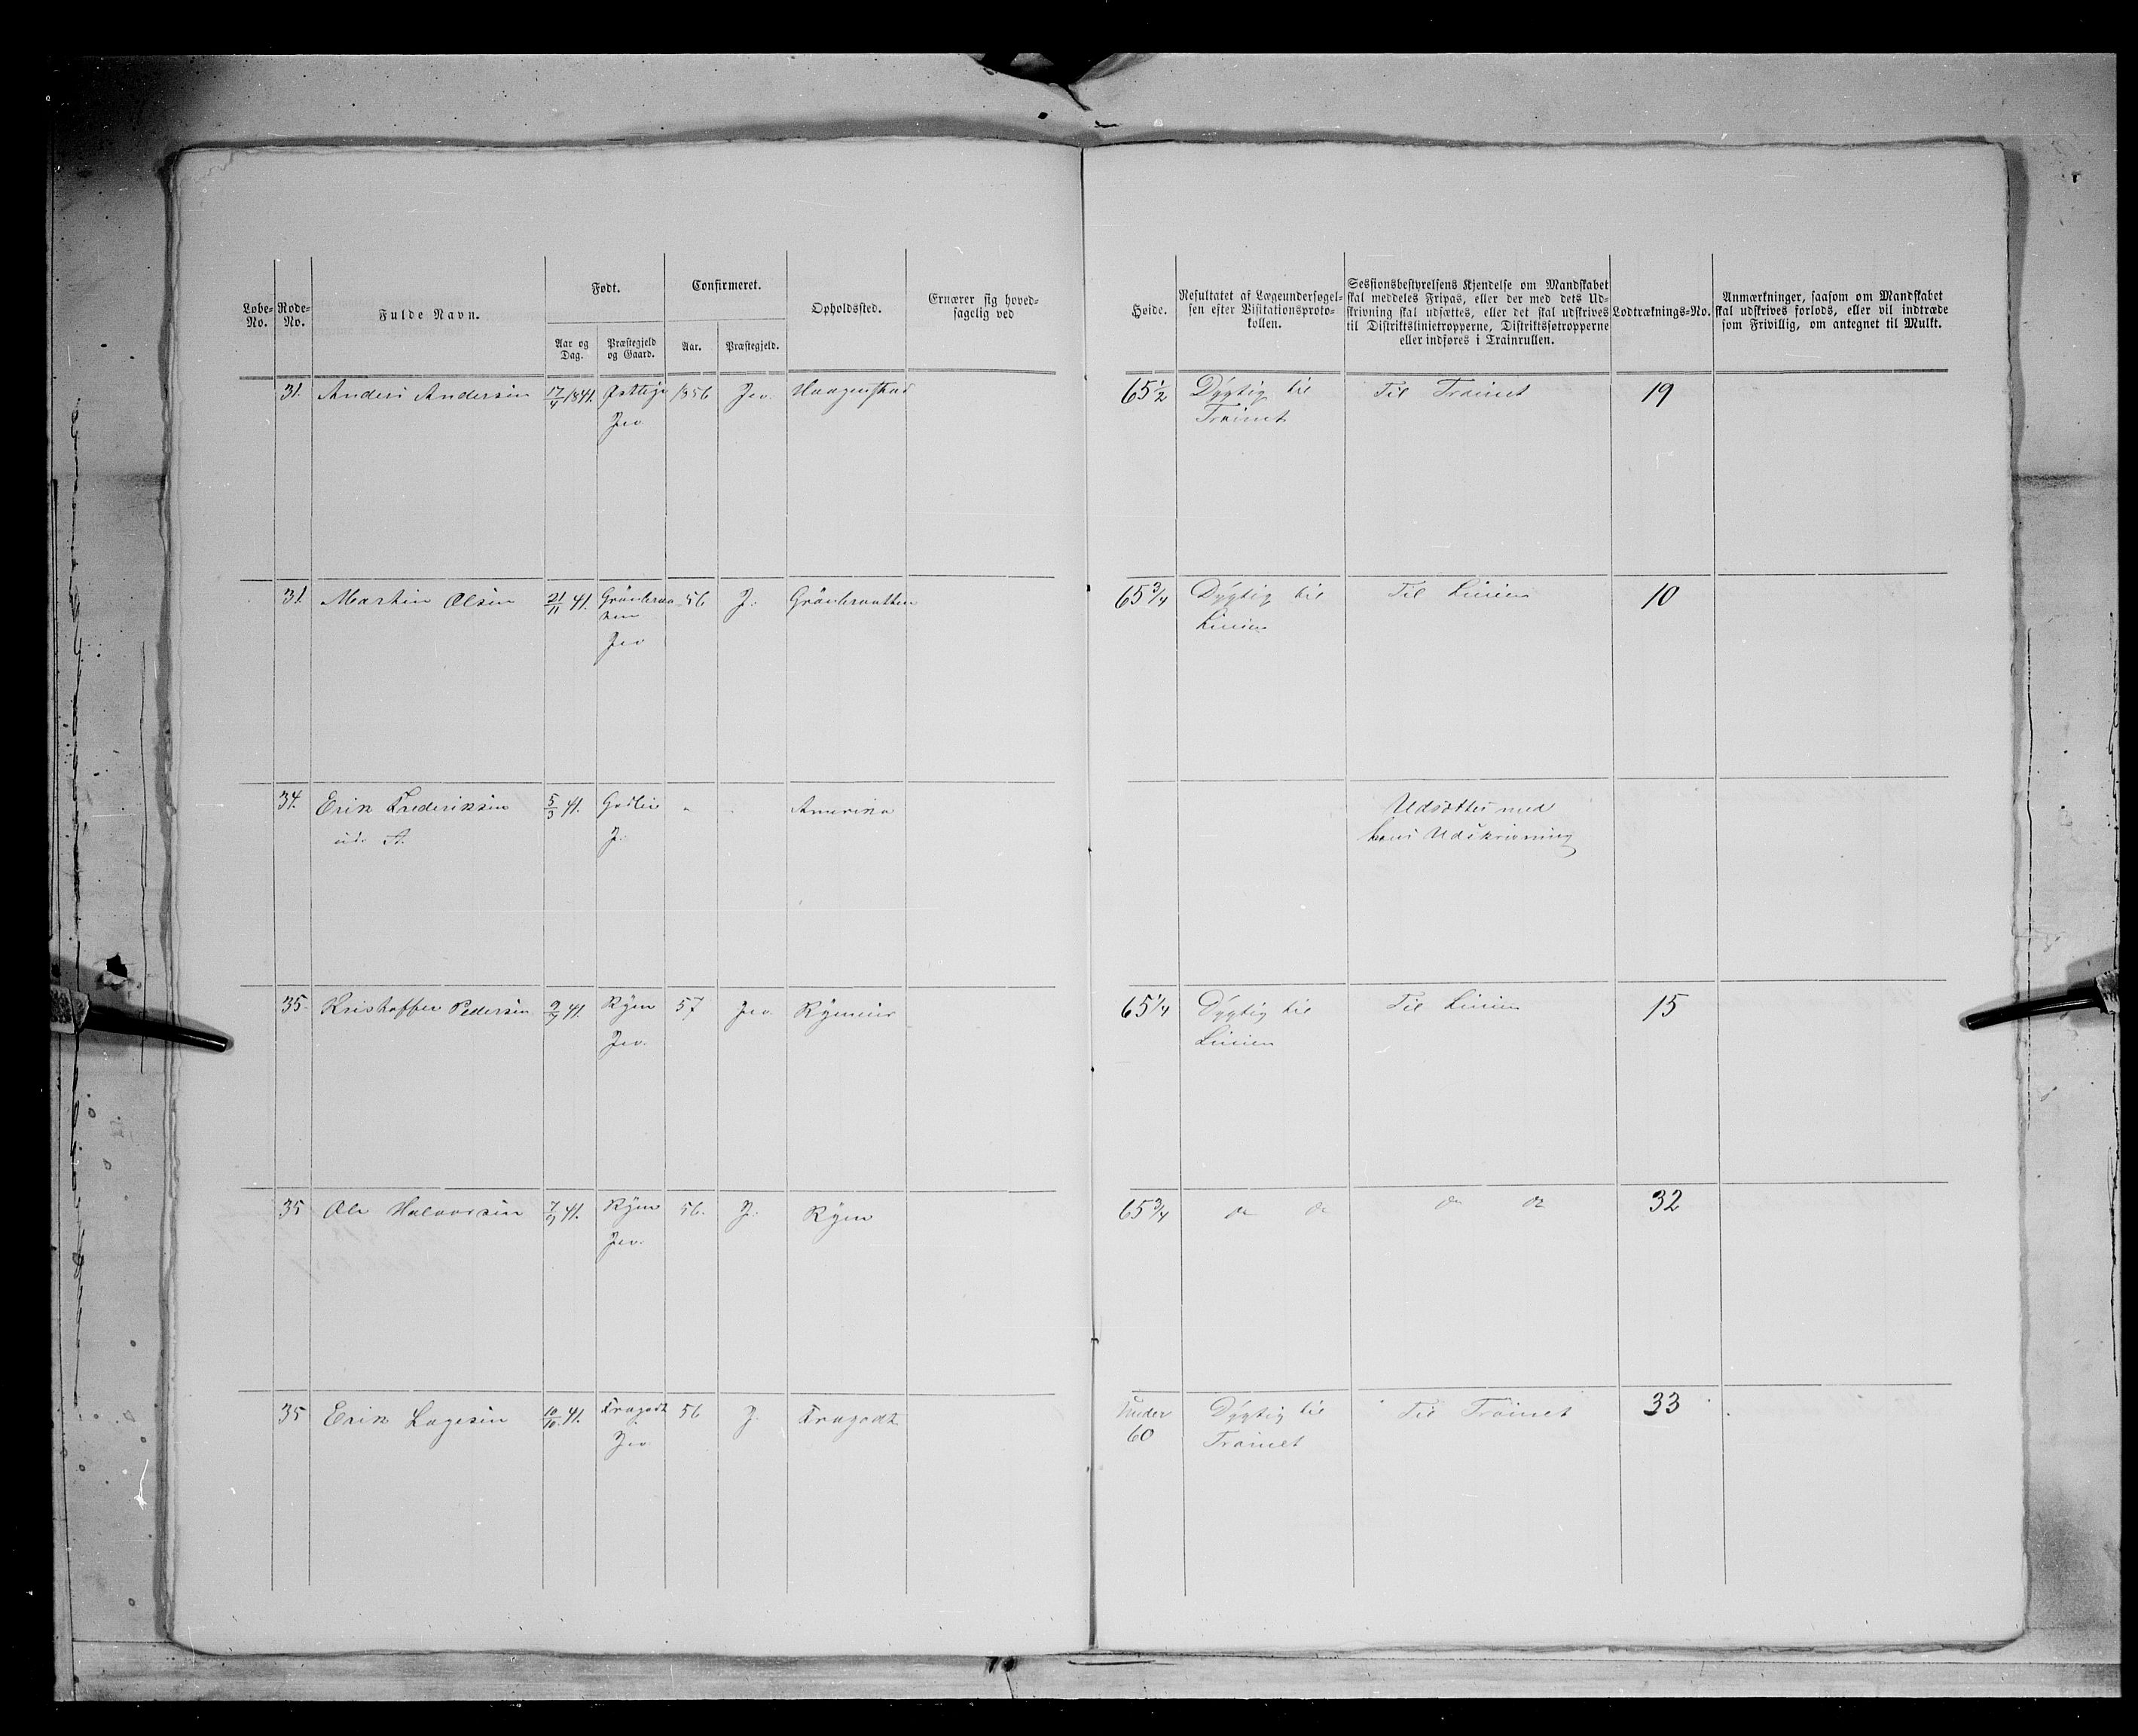 Løbe-No.
Rode-No.
Fulde Navn.
Født.
Aar og Dag.
Præstegjeld og Gaard.
Confirmeret.
Aar.
Præstegjeld.
Opholdssted.
Ernærer sig hovedsagelig ved
Høide.
Resultatet af Lægeundersøgelsen efter Visitationsprotokollen.
Sessionsbestyrelsens Kjendelse om Mandskabet skal meddeles Fripas, eller der med dets Udskrivning skal udsættes, eller det skal udskrives til Distriktslinietropperne, Distriktsfotropperne eller indføres i Trainrullen.
Lodtræknings-No.
Anmærkninger, saasom om Mandskabet skal udskrives forlods, eller vil indtræde som Frivillig, om antegnet til Mulkt.
31. Anders Andersen 17/4 1841. 1856 Jev. Haagenstad 65 1/2 Dygtig til Til Trainet 19
Jev Trainet
31 Martin Olsen 21/11 41. 56 J. Grönbraatten 65 3/4 Dygtig til Til Linien 10
Linien
Jev
34. Erik Frederiksen 5/3 41. Amerika Udsættes med
J. hans Udskrivning
35 Kristoffer Pedersen 57 Jev. 65 1/4 Dygtig til Til Linien 15
Jev. Linien
35 Ole Halvorsen 41. Ryen 56. J. Ryen 65 3/4 do do do do 32
Jev.
35 Erik Lagesen 10/10 41. 56 J. Under Dygtig til Til Trainet 33
Jev 60 Trainet